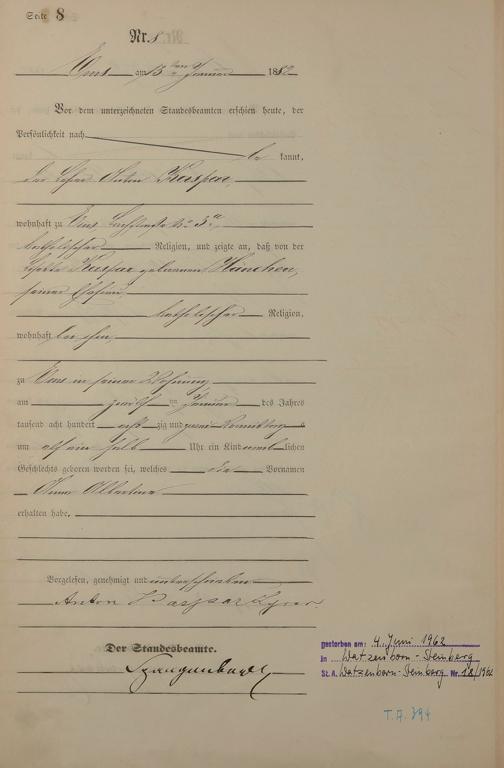 Seite 8
Nr. 8
Ems am 13ten Januar 1882
Vor dem unterzeichneten Standesbeamten erschien heute, der
Persönlichkeit nach
be kannt,
der Lehrer Anton Kaspar
wohnhaft zu Ems No 3a
katholischer Religion, und zeigte an, daß von der
Kaspar geborenen Hänchen,
seiner Ehefrau
katholischer Religion,
wohnhaft bei ihm
zu Ems in seiner Wohnung
am zwölften Januar des Jahres
tausend acht hundert acht zig und zwei Vormittags
um elf ein halb Uhr ein Kind weiblichen
Geschlechts geboren worden sei, welches die Vornamen
Anna Albertine
erhalten habe.
Vorgelesen, genehmigt und unterschrieben
Anton Kaspar
Der Standesbeamte.
Spangenberg
gestorben am: 4. Juni 1962
in Watzenborn-Steinberg
St. A. Watzenborn-Steinberg Nr. 18/1962
T.A. 394